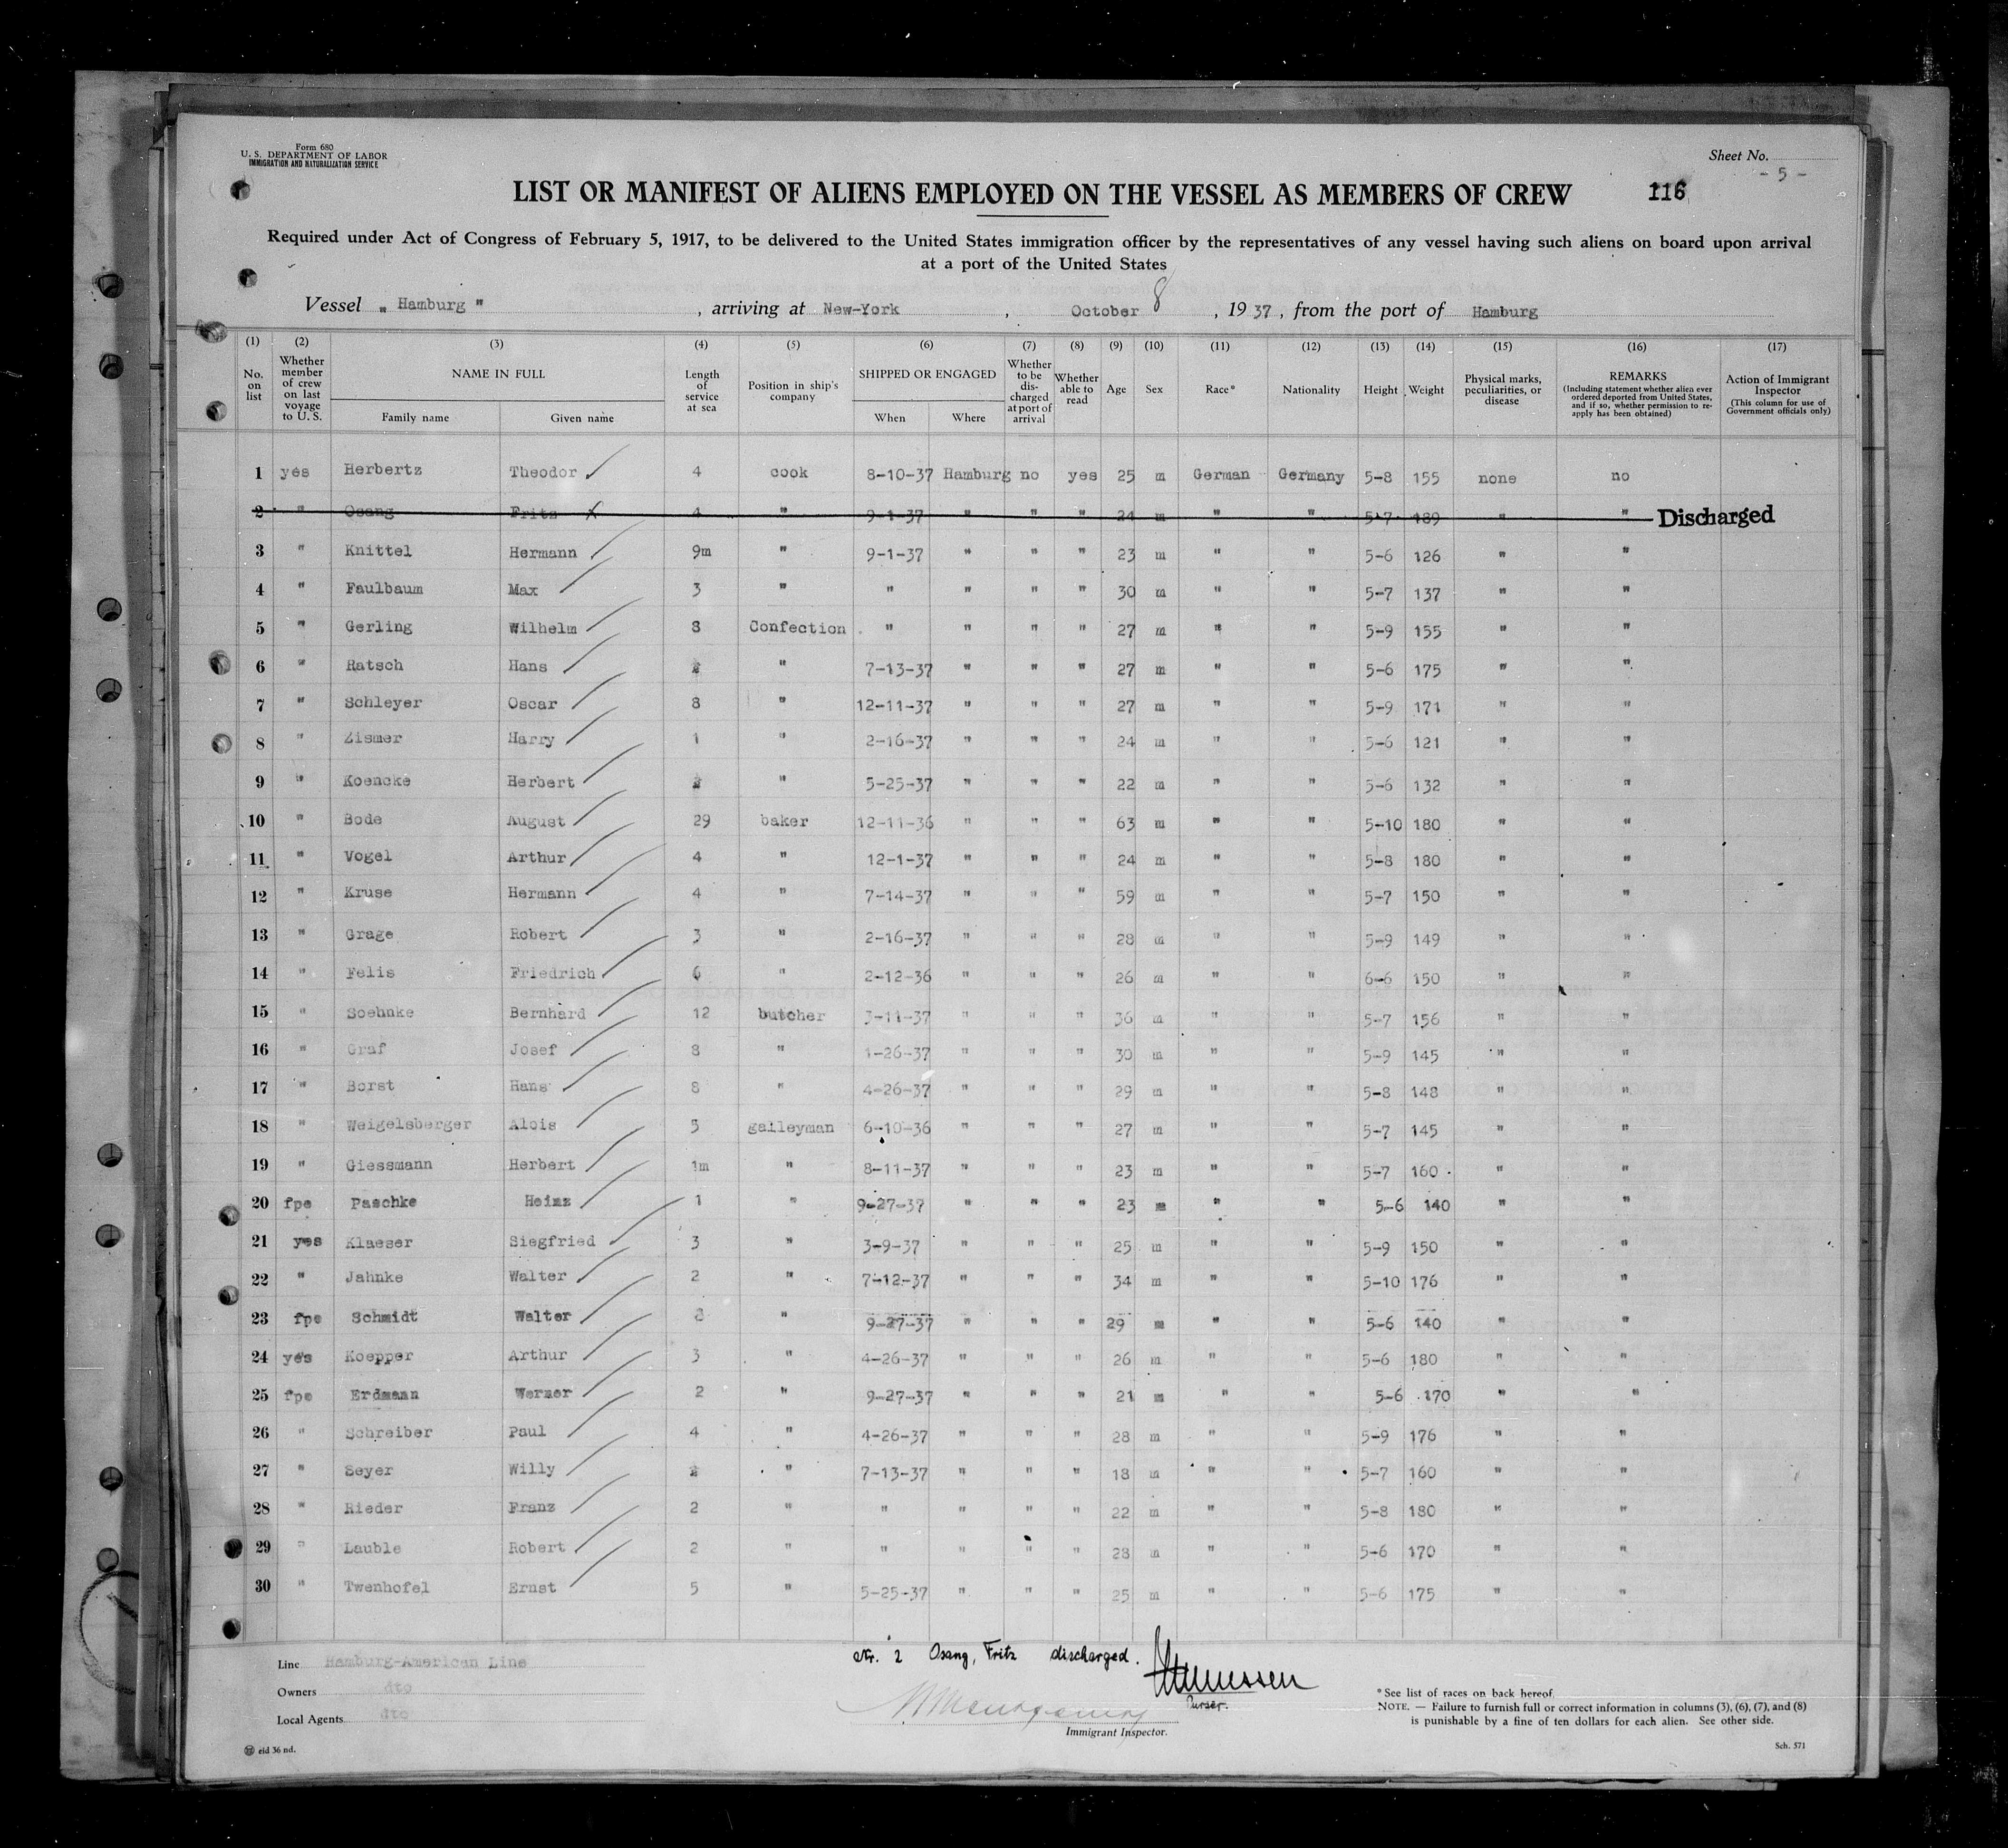 Form 680
U. S. DEPARTMENT OF LABOR
IMMIGRATION AND NATURALIZATION SERVICE
Sheet No.
- 5 -
LIST OR MANIFEST OF ALIENS EMPLOYED ON THE VESSEL AS MEMBERS OF CREW 116
Required under Act of Congress of February 5, 1917, to be delivered to the United States immigration officer by the representatives of any vessel having such aliens on board upon arrival
at a port of the United States
Vessel „ Hamburg " , arriving at New-York , October 8 , 1937, from the port of Hamburg
(1) (2) (3) (4) (5) (6) (7) (8) (9) (10) (11) (12) (13) (14) (15) (16) (17)
No. on list Whether member of crew on last voyage to U. S. NAME IN FULL Family name Given name Length of service at sea Position in ship's company SHIPPED OR ENGAGED When Where Whether to be dis-charged at port of arrival Whether able to read Age Sex Race* Nationality Height Weight Physical marks, peculiarities, or disease REMARKS (Including statement whether alien ever ordered deported from United States, and if so, whether permission to re-apply has been obtained) Action of Immigrant Inspector (This column for use of Government officials only)
1 yes Herbertz Theodor 4 cook 8-10-37 Hamburg no yes 25 m German Germany 5-8 155 none no
2 " Osang Fritz 4 " 9-1-37 " " " 24 m " " 5-7 189 " " Discharged
3 " Knittel Hermann 9m " 9-1-37 " " " 23 m " " 5-6 126 " "
4 " Faulbaum Max 3 " " " " " 30 m " " 5-7 137 " "
5 " Gerling Wilhelm 8 Confection " " " " 27 m " " 5-9 155 " "
6 " Ratsch Hans " 7-13-37 " " " 27 m " " 5-6 175 " "
7 " Schleyer Oscar 8 " 12-11-37 " " " 27 m " " 5-9 171 " "
8 " Zismer Harry 1 " 2-16-37 " " " 24 m " " 5-6 121 " "
9 " Koencke Herbert " 5-25-37 " " " 22 m " " 5-6 132 " "
10 " Bode August 29 baker 12-11-36 " " " 63 m " " 5-10 180 " "
11 " Vogel Arthur 4 " 12-1-37 " " " 24 m " " 5-8 180 " "
12 " Kruse Hermann 4 " 7-14-37 " " " 59 m " " 5-7 150 " "
13 " Grage Robert 3 " 2-16-37 " " " 28 m " " 5-9 149 " "
14 " Felis Friedrich 6 " 2-12-36 " " " 26 m " " 6-6 150 " "
15 " Soehnke Bernhard 12 butcher 3-11-37 " " " 36 m " " 5-7 156 " "
16 " Graf Josef 8 " 1-26-37 " " " 30 m " " 5-9 145 " "
17 " Borst Hans 8 " 4-26-37 " " " 29 m " " 5-8 148 " "
18 " Weigelsberger Alois 5 galleyman 6-10-36 " " " 27 m " " 5-7 145 " "
19 " Giessmann Herbert 1m " 8-11-37 " " " 23 m " " 5-7 160 " "
20 fpe Paschke Heinz 1 " 9-27-37 " " " 23 m " " 5-6 140 " "
21 yes Klaeser Siegfried 3 " 3-9-37 " " " 25 m " " 5-9 150 " "
22 " Jahnke Walter 2 " 7-12-37 " " " 34 m " " 5-10 176 " "
23 fpe Schmidt Walter " 9-27-37 " " " 29 m " " 5-6 140 " "
24 yes Koepper Arthur 3 " 4-26-37 " " " 26 m " " 5-6 180 " "
25 fpe Erdmann Werner 2 " 9-27-37 " " " 21 m " " 5-6 170 " "
26 " Schreiber Paul 4 " 4-26-37 " " " 28 m " " 5-9 176 " "
27 " Seyer Willy " 7-13-37 " " " 18 m " " 5-7 160 " "
28 " Rieder Franz 2 " " " " " 22 m " " 5-8 180 " "
29 " Lauble Robert 2 " " " " " 28 m " " 5-6 170 " "
30 " Twenhofel Ernst 5 " 5-25-37 " " " 25 m " " 5-6 175 " "
Nr. 2 Osang, Fritz discharged.
Line Hamburg-American Line
Owners dto
Local Agents dto
Purser.
Immigrant Inspector.
*See list of races on back hereof.
NOTE. — Failure to furnish full or correct information in columns (3), (6), (7), and (8)
is punishable by a fine of ten dollars for each alien. See other side.
eid 36 nd.
Sch. 571